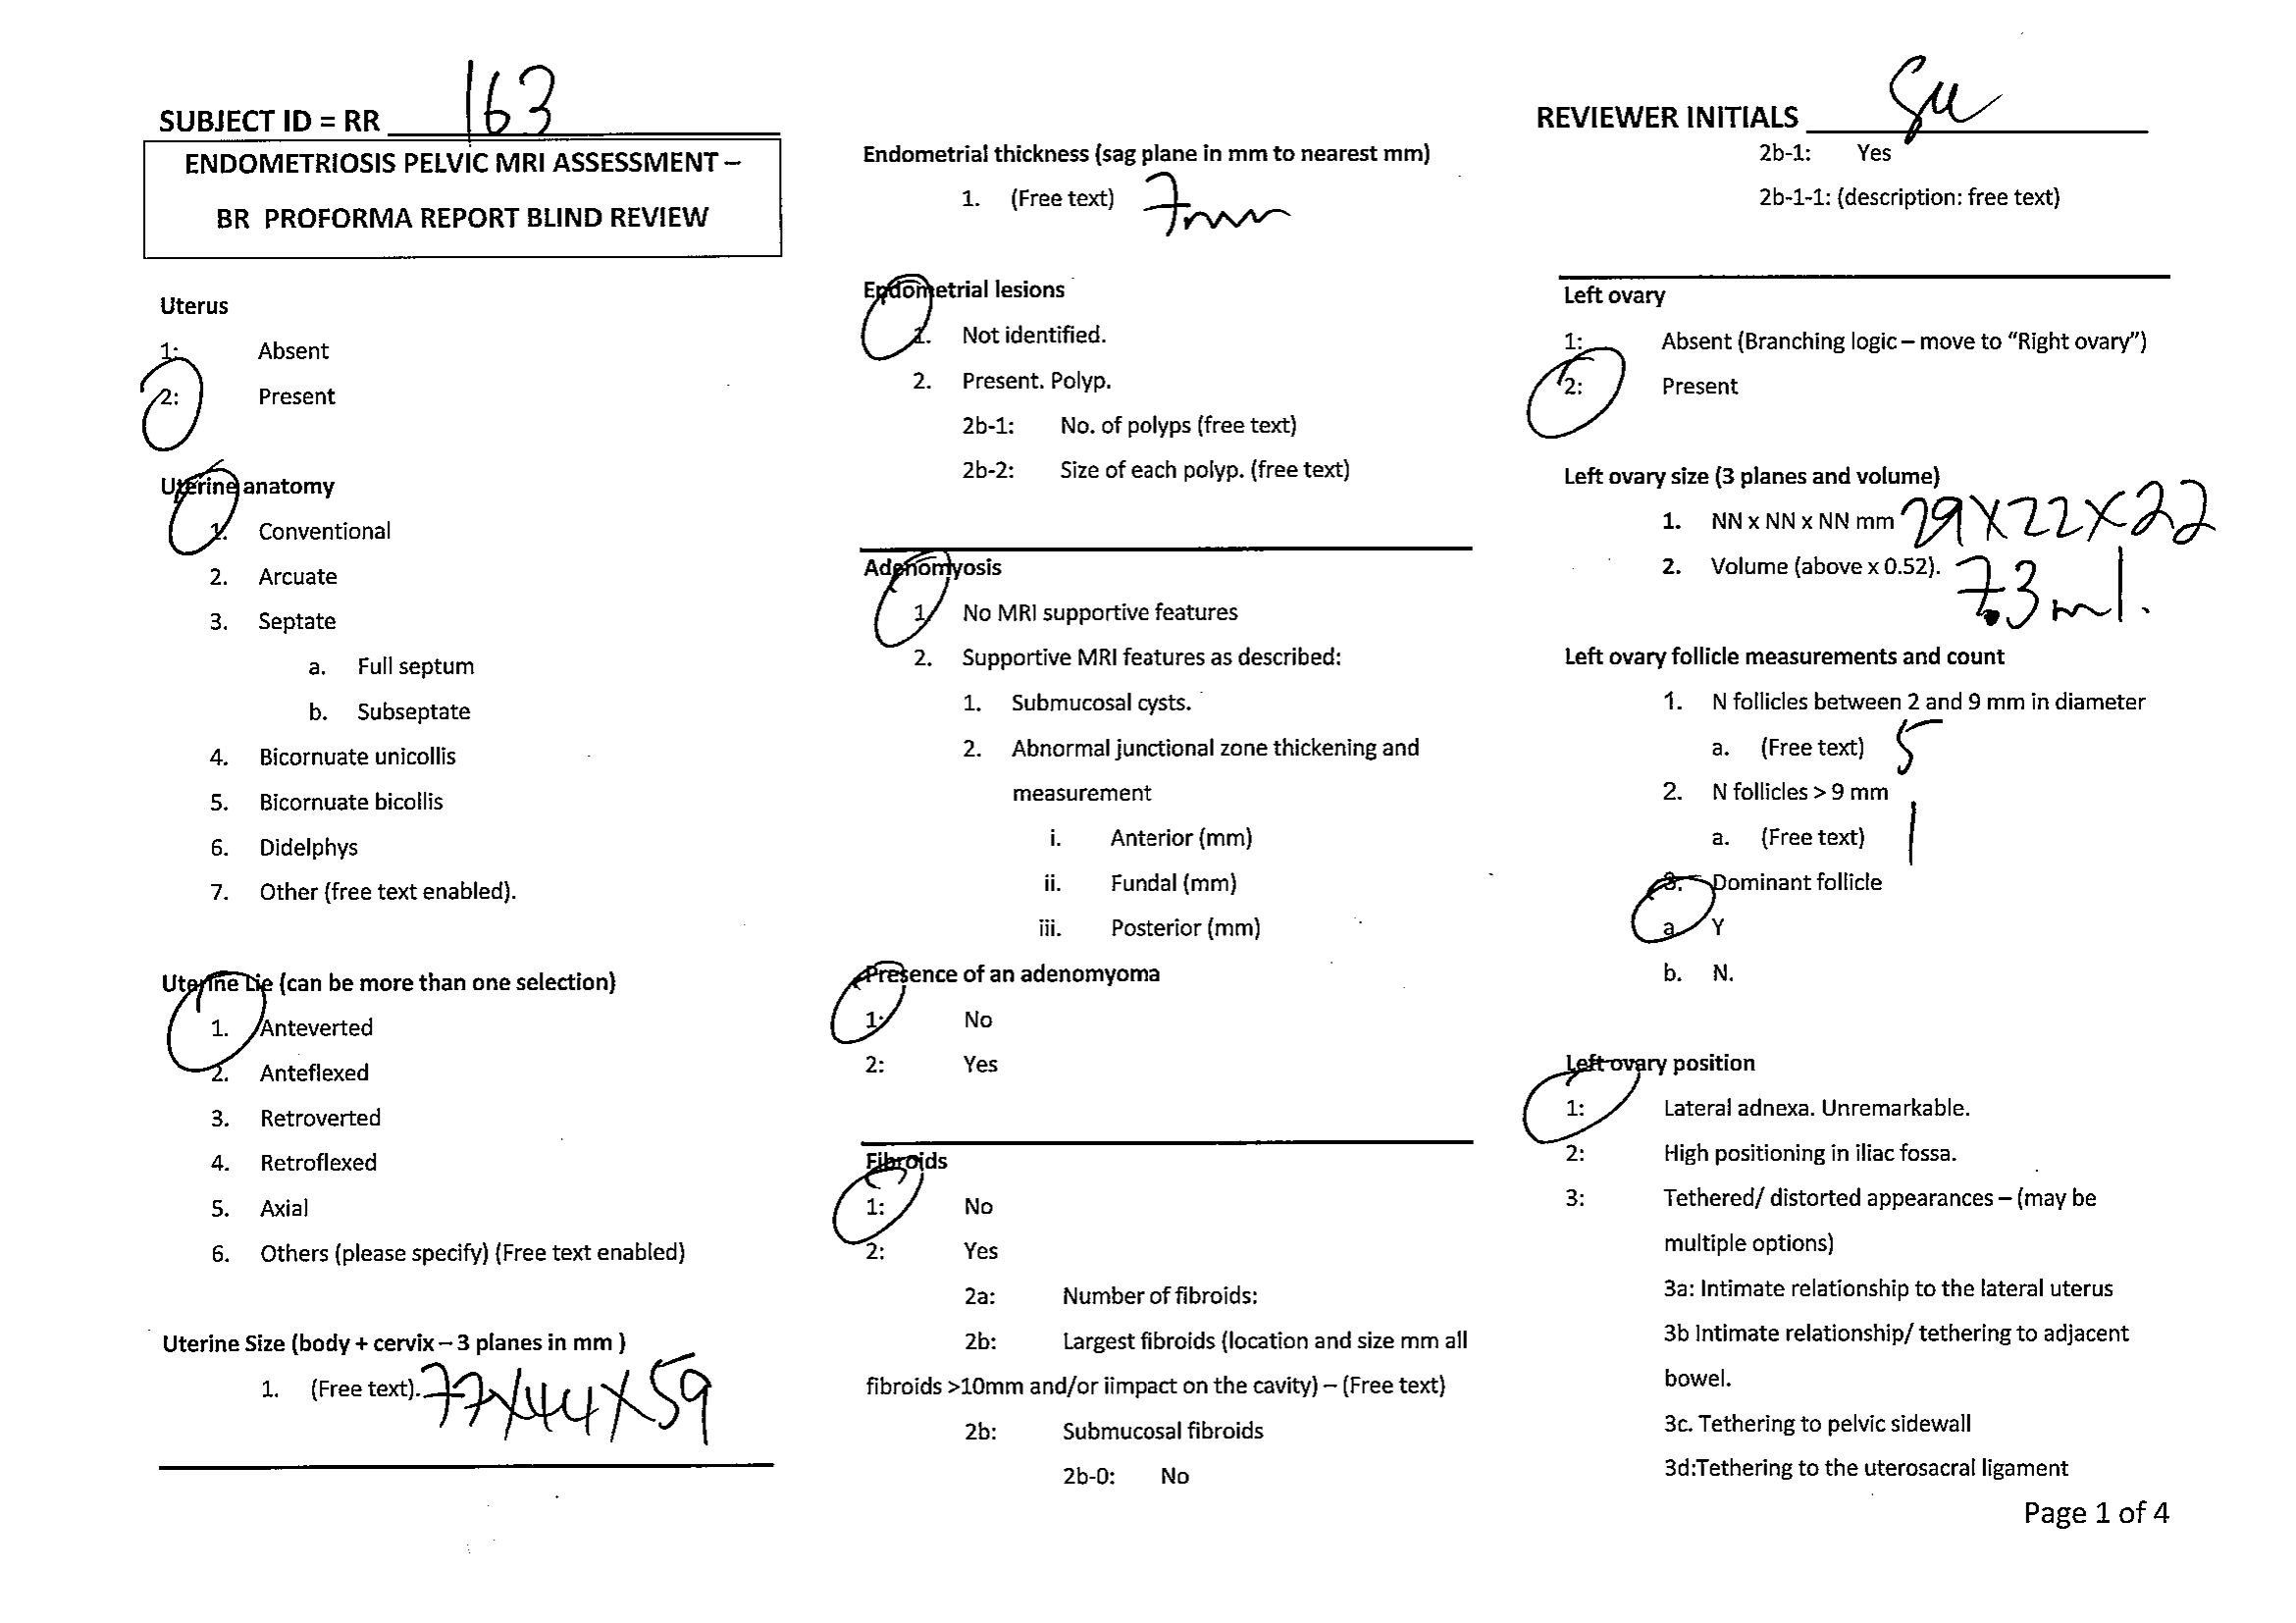 SUBJECT ID = RR 163
ENDOMETRIOSIS PELVIC MRI ASSESSMENT –
BR PROFORMA REPORT BLIND REVIEW
Uterus
1: Absent
2: Present
Uterine anatomy
1. Conventional
2. Arcuate
3. Septate
a. Full septum
b. Subseptate
4. Bicornuate unicollis
5. Bicornuate bicollis
6. Didelphys
7. Other (free text enabled).
Uterine Lie (can be more than one selection)
1. Anteverted
2. Anteflexed
3. Retroverted
4. Retroflexed
5. Axial
6. Others (please specify) (Free text enabled)
Uterine Size (body + cervix – 3 planes in mm )
1. (Free text). 77X44X59
Endometrial thickness (sag plane in mm to nearest mm)
1. (Free text) 7mm
Endometrial lesions
1. Not identified.
2. Present. Polyp.
2b-1: No. of polyps (free text)
2b-2: Size of each polyp. (free text)
Adenomyosis
1. No MRI supportive features
2. Supportive MRI features as described:
1. Submucosal cysts.
2. Abnormal junctional zone thickening and
measurement
i. Anterior (mm)
ii. Fundal (mm)
iii. Posterior (mm)
Presence of an adenomyoma
1: No
2: Yes
Fibroids
1: No
2: Yes
2a: Number of fibroids:
2b: Largest fibroids (location and size mm all
fibroids >10mm and/or iimpact on the cavity) – (Free text)
2b: Submucosal fibroids
2b-0: No
REVIEWER INITIALS
2b-1: Yes
2b-1-1: (description: free text)
Left ovary
1: Absent (Branching logic – move to “Right ovary”)
2: Present
Left ovary size (3 planes and volume)
1. NN x NN x NN mm 29X22X22
2. Volume (above x 0.52). 7.3ml.
Left ovary follicle measurements and count
1. N follicles between 2 and 9 mm in diameter
a. (Free text) 5
2. N follicles > 9 mm
a. (Free text) 1
3. Dominant follicle
a. Y
b. N.
Left ovary position
1: Lateral adnexa. Unremarkable.
2: High positioning in iliac fossa.
3: Tethered/ distorted appearances – (may be
multiple options)
3a: Intimate relationship to the lateral uterus
3b Intimate relationship/ tethering to adjacent
bowel.
3c. Tethering to pelvic sidewall
3d:Tethering to the uterosacral ligament
Page 1 of 4